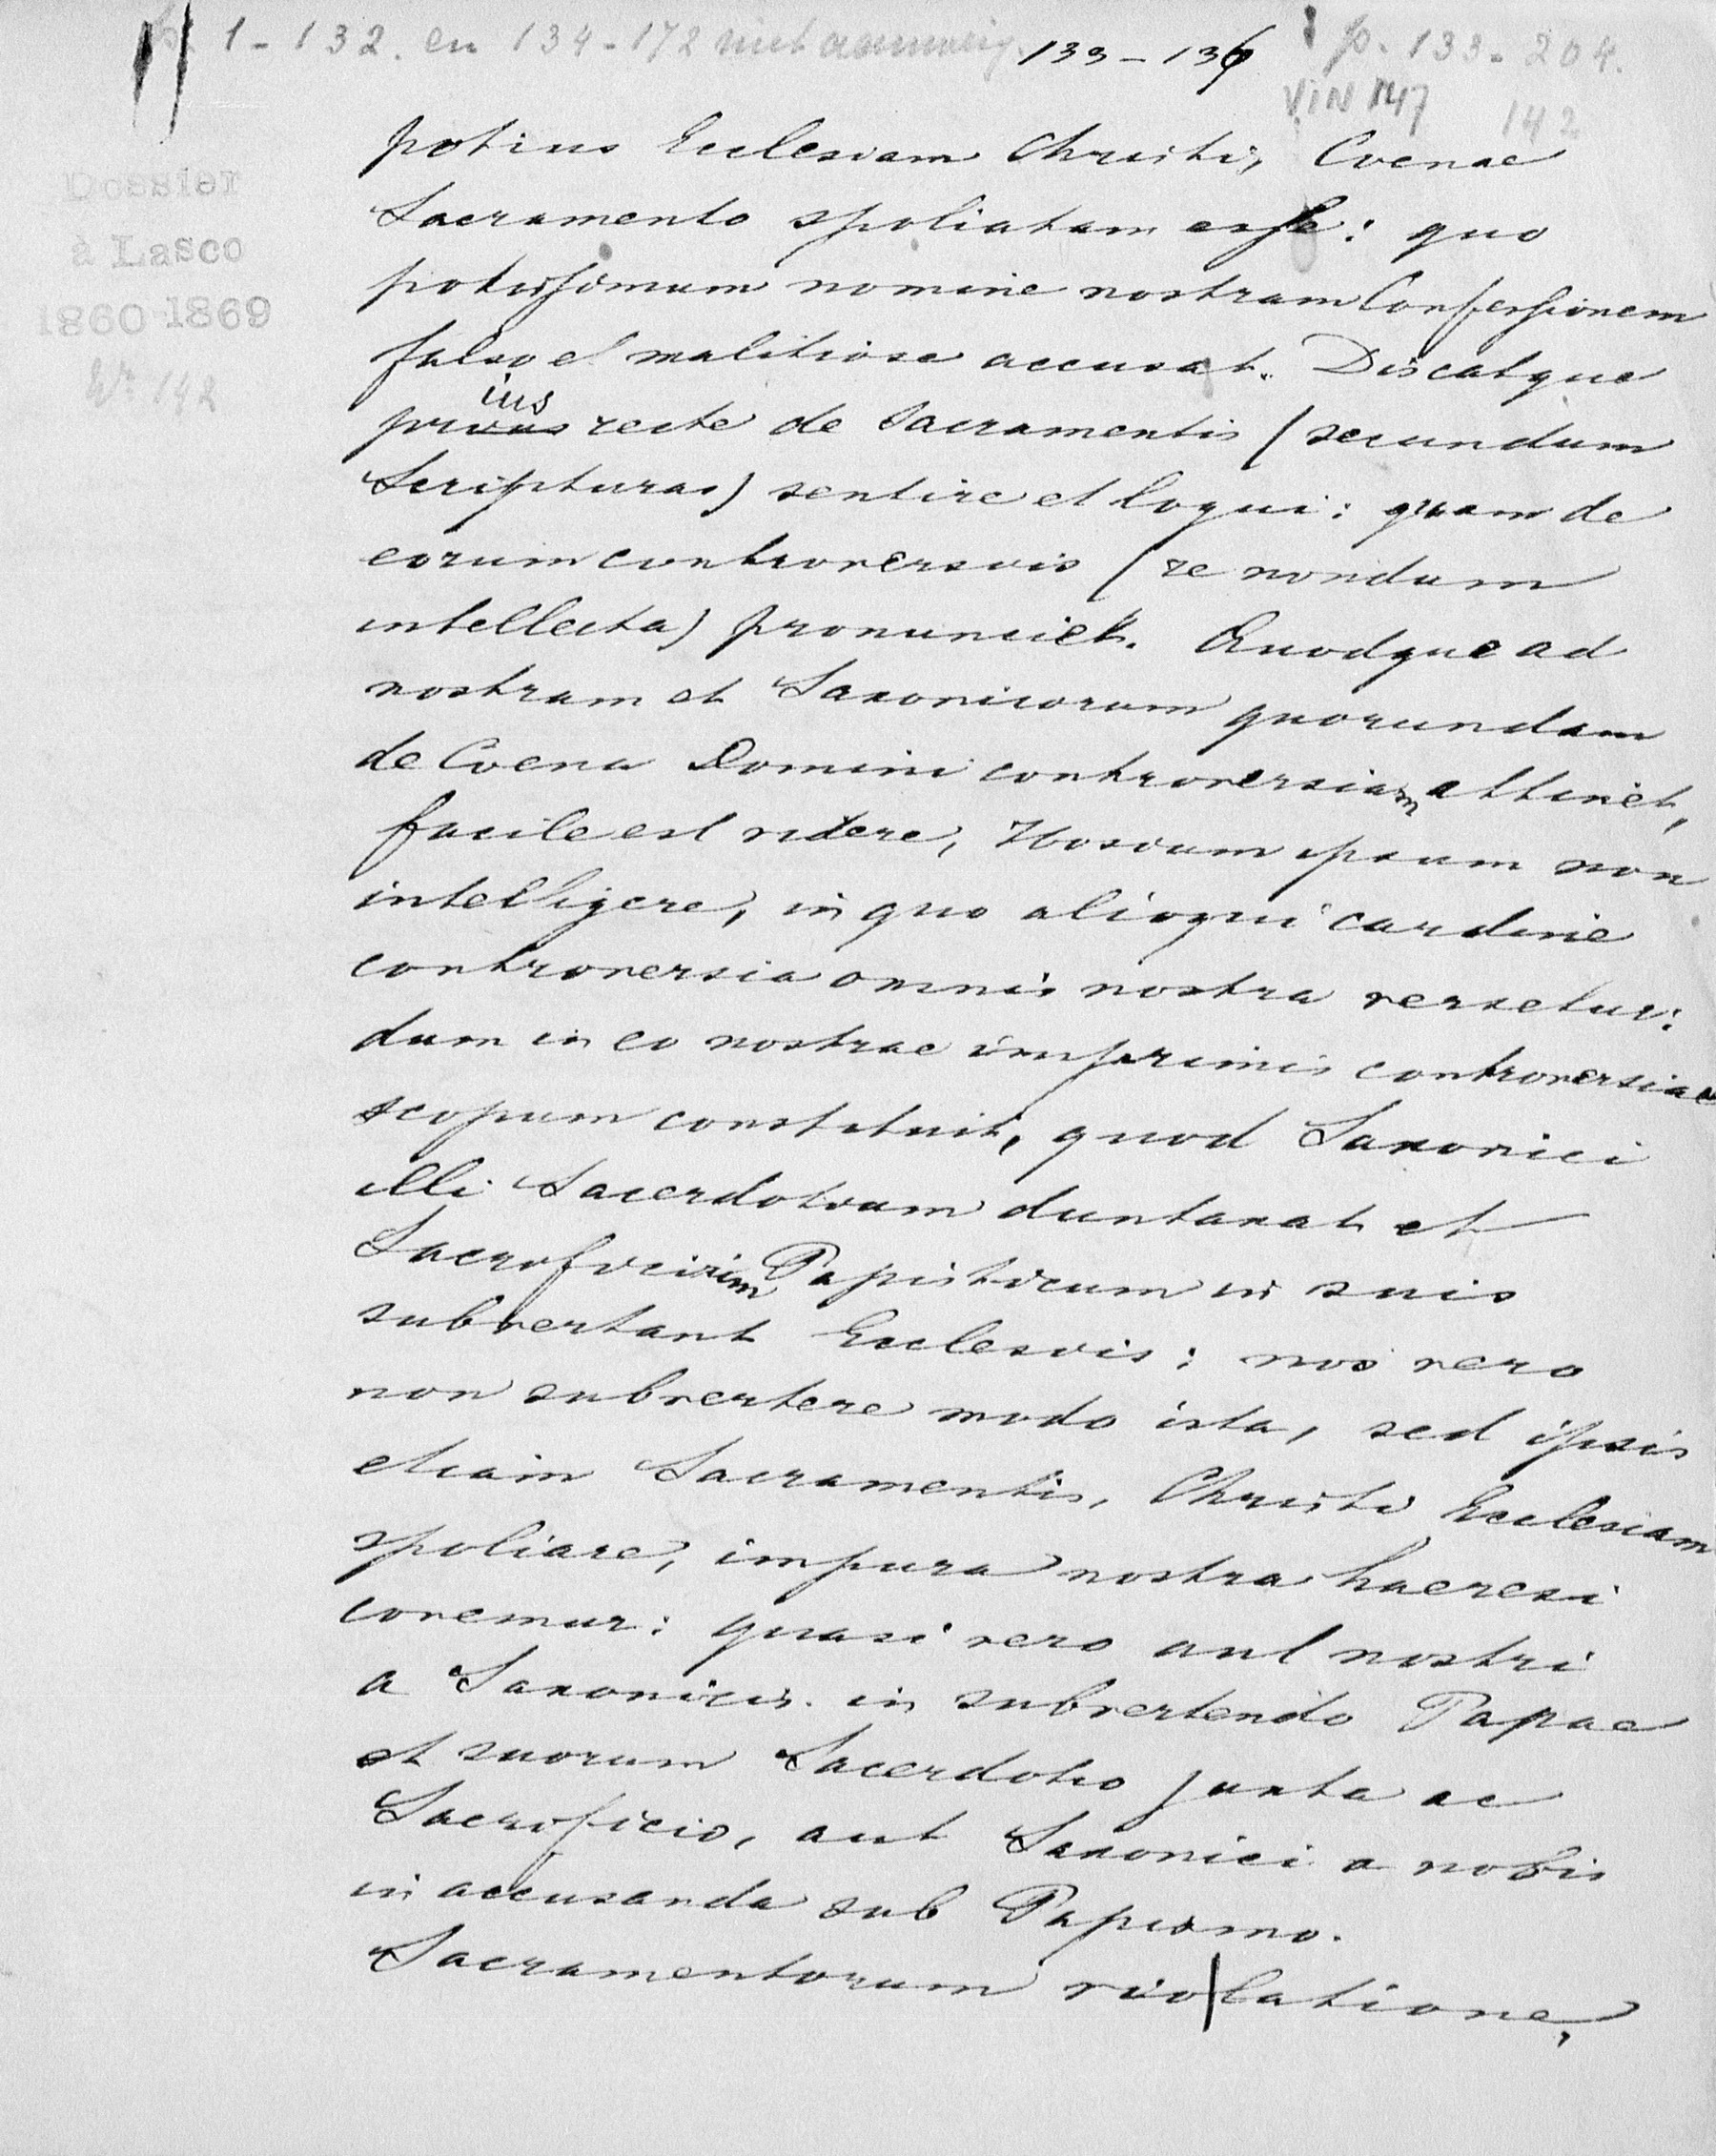 1 - 132. en 134 - 172 niet aanwezig.
133 - 136
p. 133 - 204.
VIN 147
142
Dossier
à Lasco
1860 1869
Nr. 142
potius Ecclesiam Christi, Coenae
Sacramento spoliatam esse: quo
potissimum nomine nostram Confessionem
falso et malitiose accusat. Discatque
prius recte de Sacramentis (secundum
Scripturas) sentire et loqui: quam de
eorum controversiis (re nondum
intellecta) pronunciet. Quodque ad
nostram et Saxonicorum quorundam
de Coena Domini controversiam attinet,
facile est videre, Hosium ipsum non
intelligere, in quo alioqui cardine
controversia omnis nostra versetur:
dum in eo nostrae imprimis controversiae
scopum constituit, quod Saxonici
illi Sacerdotium duntaxat et
Sacrificium Papisticum in suis
subvertant Ecclesiis: nos vero
non subvertere modo ista, sed ipsis
etiam Sacramentis, Christi Ecclesiam
spoliare, impura nostra haeresi
conemur: quasi vero aut nostri
a Saxonicis in subvertendo Papae
et suorum Sacerdotio juxta ac
Sacrificio, aut Saxonici a nobis
in accusanda sub Papismo.
Sacramentorum violatione,